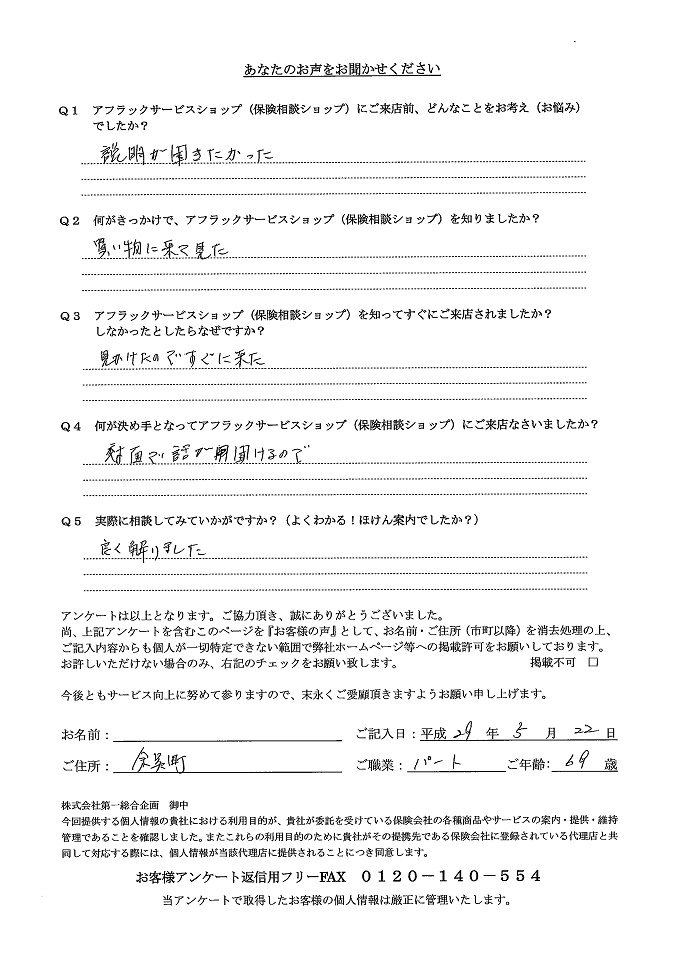 あなたのお声をお聞かせください
Q1 アフラックサービスショップ（保険相談ショップ）にご来店前、どんなことをお考え（お悩み）
でしたか？
説明が聞きたかった
Q2 何がきっかけで、アフラックサービスショップ（保険相談ショップ）を知りましたか？
買い物に来て見た
Q3 アフラックサービスショップ（保険相談ショップ）を知ってすぐにご来店されましたか？
しなかったとしたらなぜですか？
見かけたのですぐに来た
Q4 何が決め手となってアフラックサービスショップ（保険相談ショップ）にご来店なさいましたか？
対面で話が聞けるので
Q5 実際に相談してみていかがですか？（よくわかる！ほけん案内でしたか？）
良く解りました
アンケートは以上となります。ご協力頂き、誠にありがとうございました。
尚、上記アンケートを含むこのページを『お客様の声』として、お名前・ご住所（市町以降）を消去処理の上、
ご記入内容からも個人が一切特定できない範囲で弊社ホームページ等への掲載許可をお願いしております。
お許しいただけない場合のみ、右記のチェックをお願い致します。 掲載不可 □
今後ともサービス向上に努めて参りますので、末永くご愛顧頂きますようお願い申し上げます。
お名前： ご記入日：平成 29 年 5 月 22 日
ご住所： 余呉町 ご職業： パート ご年齢： 69 歳
株式会社第一総合企画 御中
今回提供する個人情報の貴社における利用目的が、貴社が委託を受けている保険会社の各種商品やサービスの案内・提供・維持
管理であることを確認しました。またこれらの利用目的のために貴社がその提携先である保険会社に登録されている代理店と共
同して対応する際には、個人情報が当該代理店に提供されることにつき同意します。
お客様アンケート返信用フリーFAX 0120－140－554
当アンケートで取得したお客様の個人情報は厳正に管理いたします。